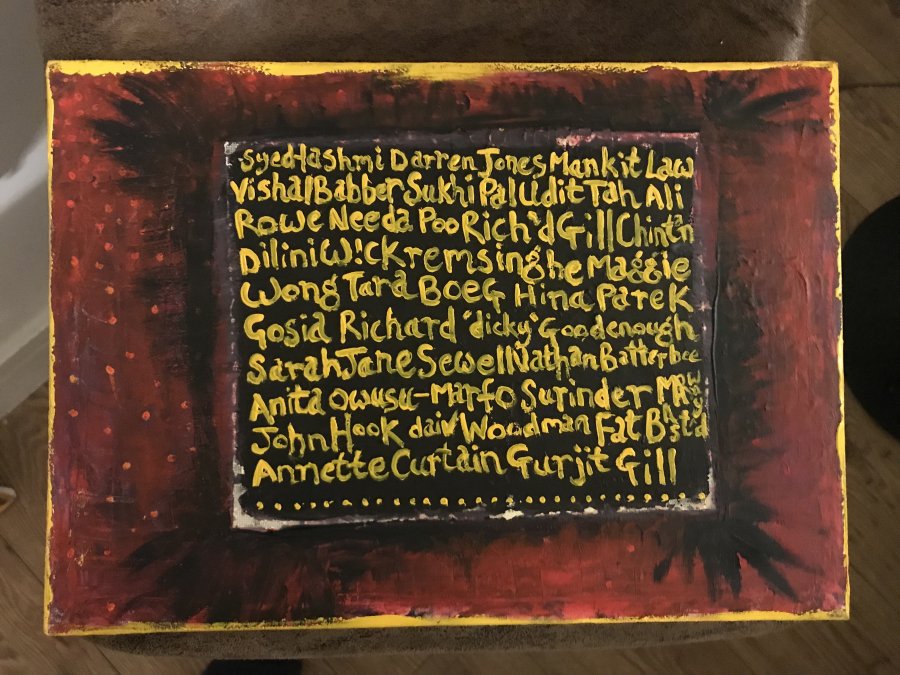 SyedHashmi Darren Jones Mankit Law
VishalBabber Sukhi Pal Udit Tah Ali
Rowe Needa Poo Rich'd Gill Chintn
Dilini W!cKremsinghe Maggie
Wong Tara BoeG Hina PareK
Gosia Richard "dicky" Goodenough
SarahJane Sewell Nathan Batterbee
Anita Owusu-Marfo Surinder
John Hook daiv Woodman Fat Bast'd
Annette Curtain Gurjit Gill